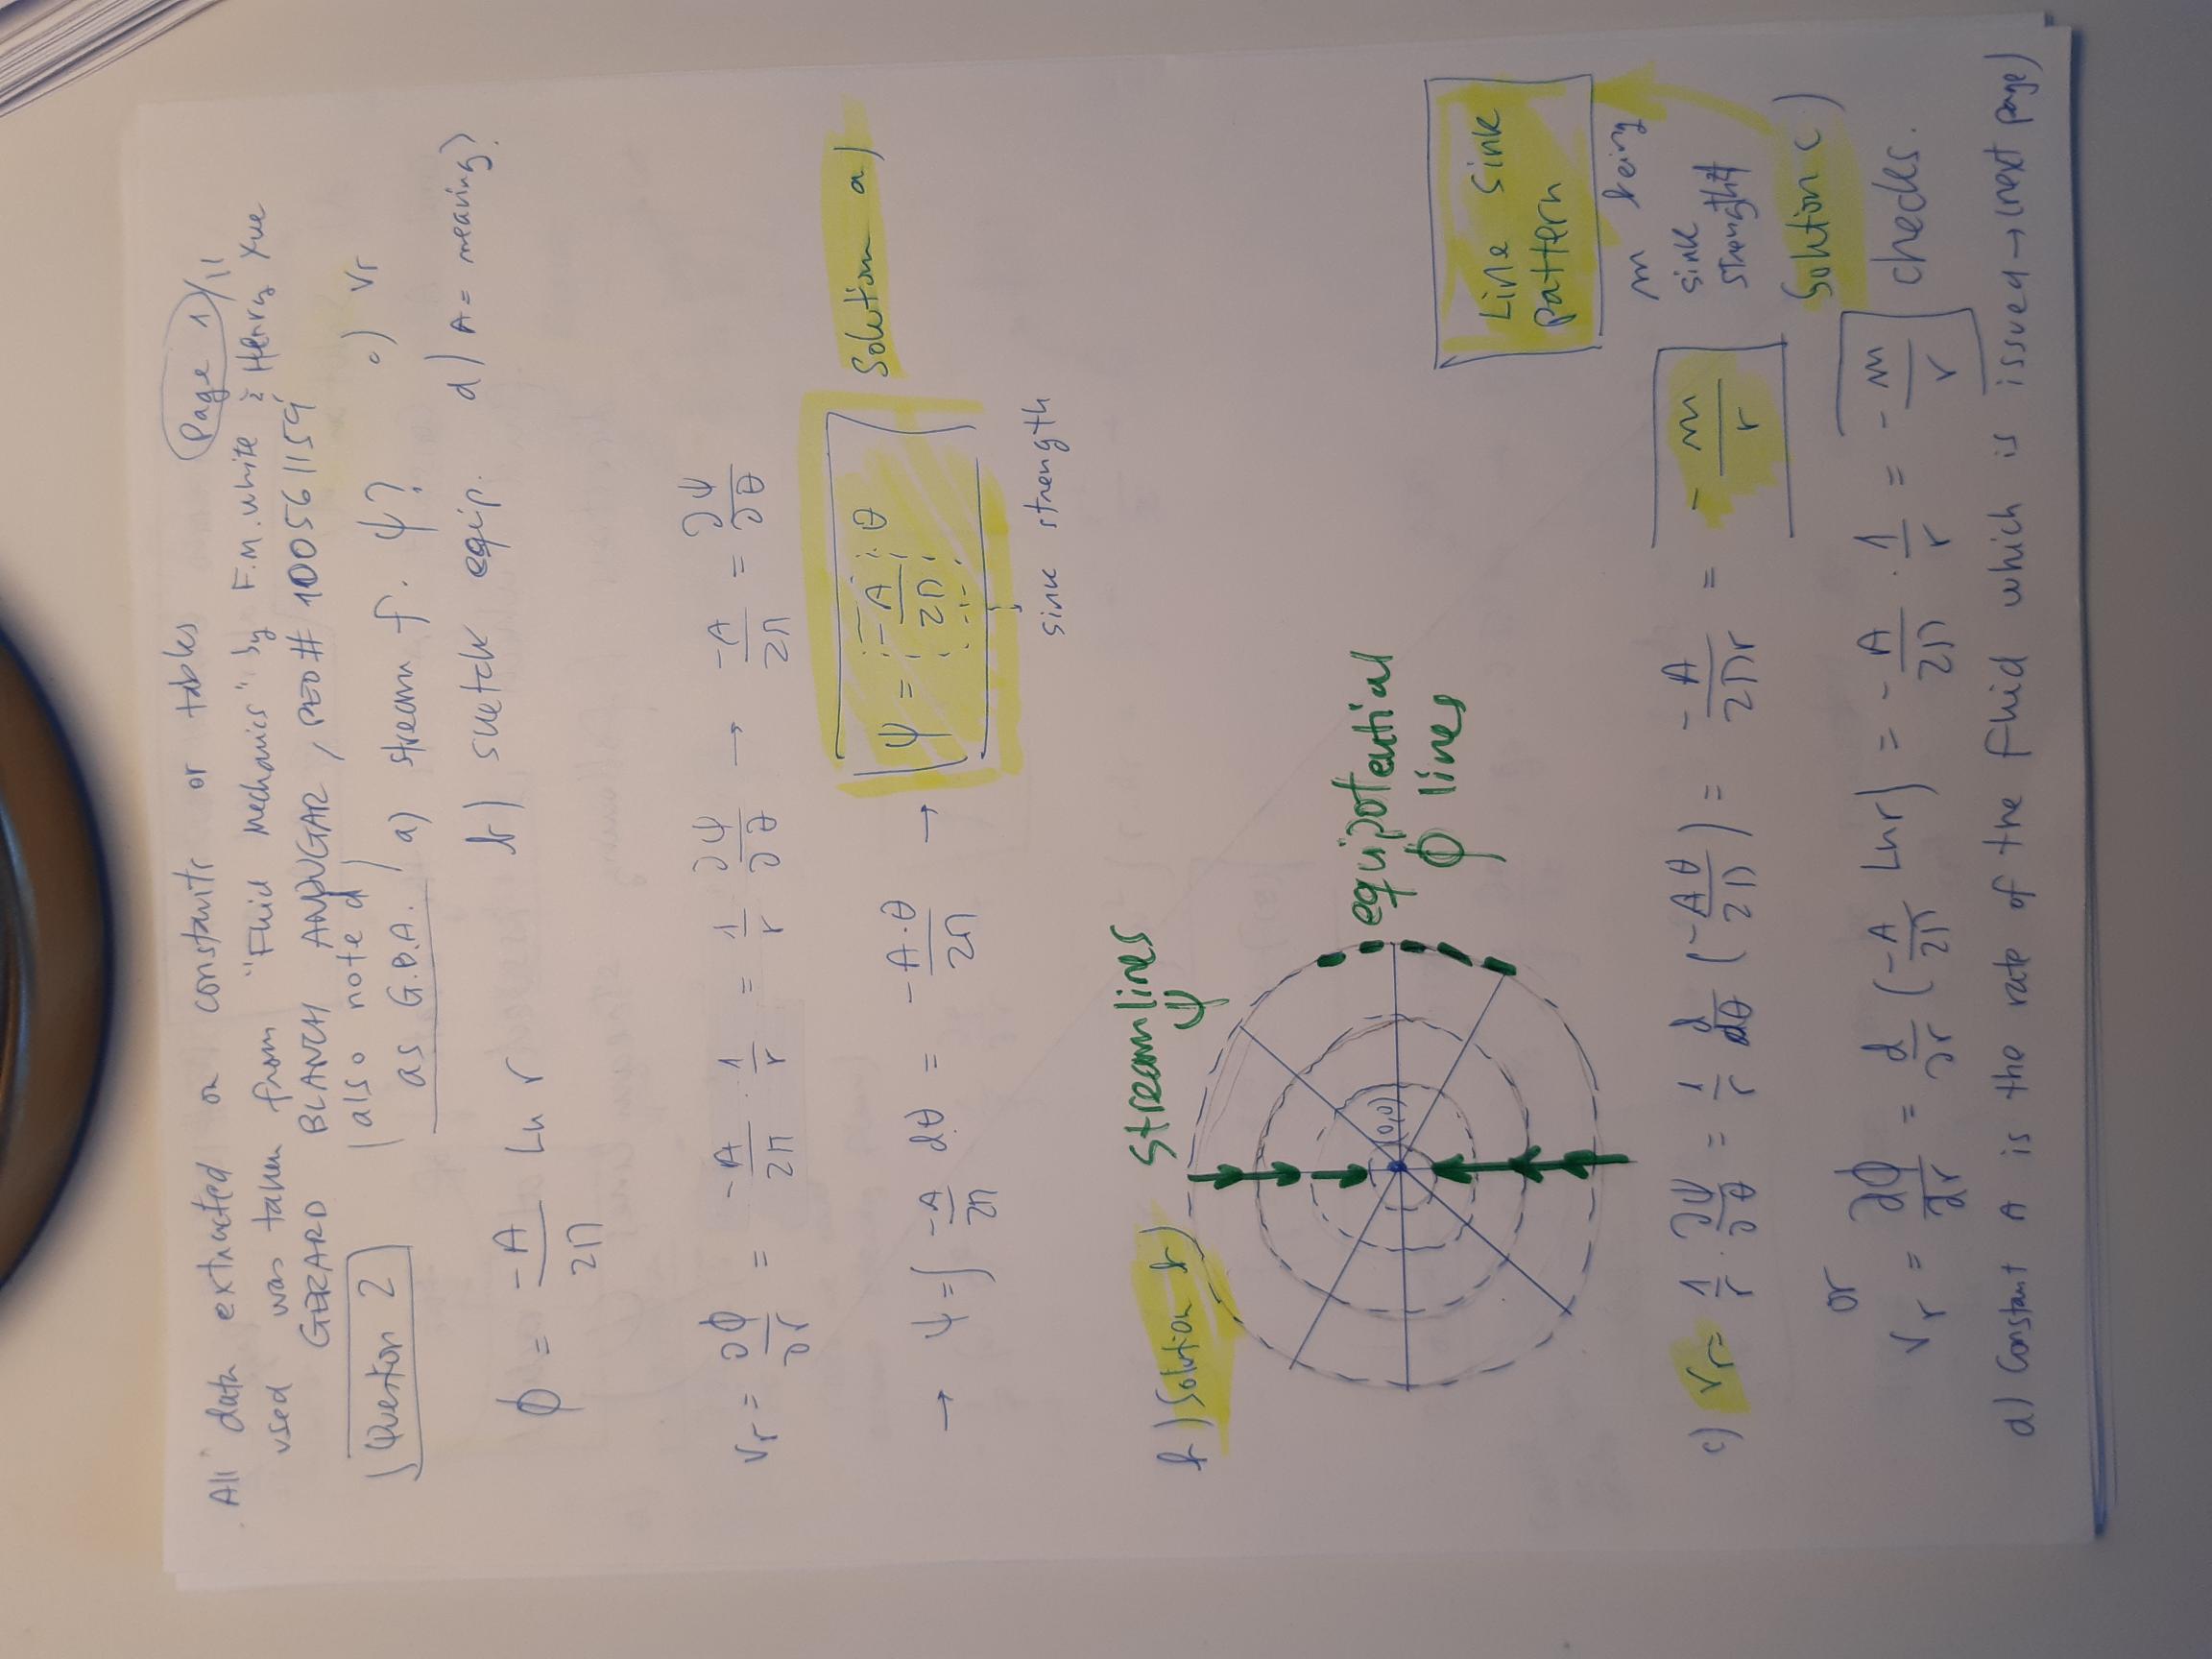 All data extracted on constants or tables Page 1/11
used was taken from "Fluid Mechanics" by F.M. White & Henry Xue
GERARD BLANCH ANDUGAR, PEO# 100561159
Question 2
also noted as G.B.A.
a) stream f. ψ? c) Vr
b) sketch equip. d) A = meaning?
ϕ = -A/2π Ln r
Vr = ∂ϕ/∂r = -A/2π · 1/r = 1/r ∂ψ/∂θ → -A/2π = ∂ψ/∂θ
→ ψ = ∫ -A/2π dθ = -A·θ/2π → ψ = -A/2π · θ Solution a)
sink strength
b) Solution b)
streamlines
ψ
(0,0)
equipotential
ϕ lines
Line Sink
pattern
m being
sink
strength
c) Vr = 1/r · ∂ψ/∂θ = 1/r d/dθ (-Aθ/2π) = -A/2πr = - m/r
Solution c)
or
Vr = ∂ϕ/∂r = d/∂r (-A/2π Ln r) = -A/2π · 1/r = -m/r checks.
d) Constant A is the rate of the fluid which is issued → (next page)